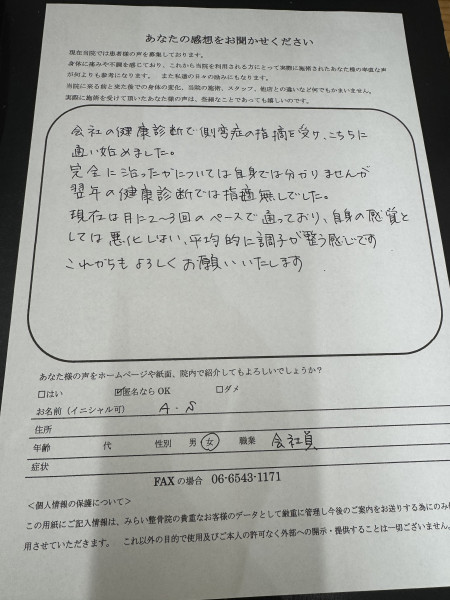 あなたの感想をお聞かせください
現在当院では患者様の声を募集しております。
身体に痛みや不調を感じており、これから当院を利用される方にとって実際に施術されたあなた様の率直な声
が何よりも参考になります。 また私達の日々の励みにもなります。
当院に来る前と来た後での身体の変化、当院の施術、スタッフ、他店との違いなど何でもかまいません。
実際に施術を受けて頂いたあなた様の声は、些細なことであっても嬉しいのです。
会社の健康診断で側弯症の指摘を受け、こちらに
通い始めました。
完全に治ったかについては自身では分かりませんが
翌年の健康診断では指摘無しでした。
現在は月に2~3回のペースで通っており、自身の感覚と
しては悪化しない、平均的に調子が整う感じです
これからもよろしくお願いいたします
あなた様の声をホームページや紙面、院内で紹介してもよろしいでしょうか?
□はい ☑匿名ならOK □ダメ
お名前(イニシャル可) A・S
住所
年齢 代 性別 男 女 職業 会社員
症状
FAXの場合 06-6543-1171
<個人情報の保護について>
この用紙にご記入情報は、みらい整骨院の貴重なお客様のデータとして厳重に管理し今後のご案内をお送りする為にのみ
用させていただきます。 これ以外の目的で使用及びご本人の許可なく外部への開示・提供することは一切ございません。